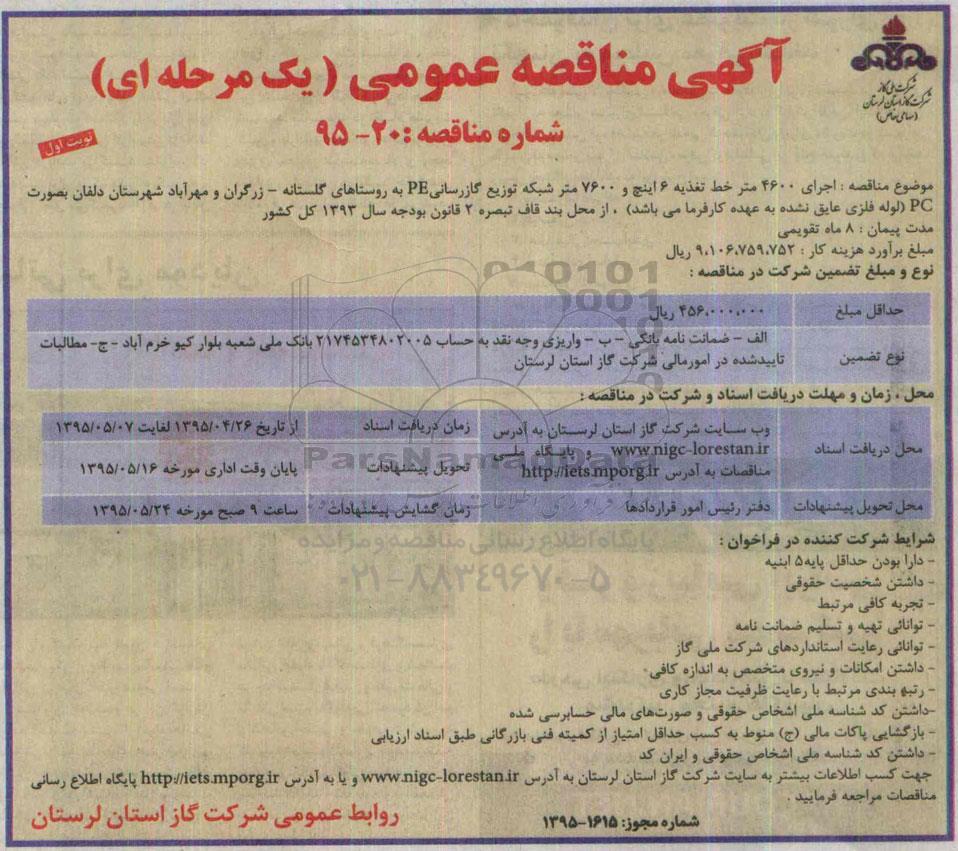 شرکت ملی گاز
شرکت گاز استان لرستان
(سهامی خاص)
آگهی مناقصه عمومی (یک مرحله ای)
شماره مناقصه : ۲۰- ۹۵
نوبت اول
موضوع مناقصه : اجرای ۴۶۰۰ متر خط تغذیه ۶ اینچ و ۷۶۰۰ متر شبکه توزیع گازرسانی PE به روستاهای گلستانه - زرگران و مهرآباد شهرستان دلفان بصورت
PC (لوله فلزی عایق نشده به عهده کارفرما می باشد) ، از محل بند قاف تبصره ۲ قانون بودجه سال ۱۳۹۳ کل کشور
مدت پیمان : ۸ ماه تقویمی
مبلغ برآورد هزینه کار : ۹،۱۰۶،۷۵۹،۷۵۲ ریال
نوع و مبلغ تضمین شرکت در مناقصه :
حداقل مبلغ ۴۵۶،۰۰۰،۰۰۰ ریال
نوع تضمین الف - ضمانت نامه بانکی - ب - واریزی وجه نقد به حساب ۲۱۷۴۵۳۴۸۰۲۰۰۵ بانک ملی شعبه بلوار کیو خرم آباد - ج- مطالبات
تاییدشده در امورمالی شرکت گاز استان لرستان
محل ، زمان و مهلت دریافت اسناد و شرکت در مناقصه :
محل دریافت اسناد وب سایت شرکت گاز استان لرستان به آدرس
www.nigc-lorestan.ir پایگاه ملی
مناقصات به آدرس http://iets.mporg.ir
زمان دریافت اسناد از تاریخ ۱۳۹۵/۰۴/۲۶ لغایت ۱۳۹۵/۰۵/۰۷
تحویل پیشنهادات پایان وقت اداری مورخه ۱۳۹۵/۰۵/۱۶
محل تحویل پیشنهادات دفتر رئیس امور قراردادها زمان گشایش پیشنهادات ساعت ۹ صبح مورخه ۱۳۹۵/۰۵/۲۴
شرایط شرکت کننده در فراخوان :
- دارا بودن حداقل پایه ۵ ابنیه
- داشتن شخصیت حقوقی
- تجربه کافی مرتبط
- توانائی تهیه و تسلیم ضمانت نامه
- توانائی رعایت استانداردهای شرکت ملی گاز
- داشتن امکانات و نیروی متخصص به اندازه کافی
- رتبه بندی مرتبط با رعایت ظرفیت مجاز کاری
-داشتن کد شناسه ملی اشخاص حقوقی و صورت‌های مالی حسابرسی شده
- بازگشایی پاکات مالی (ج) منوط به کسب حداقل امتیاز از کمیته فنی بازرگانی طبق اسناد ارزیابی
- داشتن کد شناسه ملی اشخاص حقوقی و ایران کد
جهت کسب اطلاعات بیشتر به سایت شرکت گاز استان لرستان به آدرس www.nigc-lorestan.ir و یا به آدرس http://iets.mporg.ir پایگاه اطلاع رسانی
مناقصات مراجعه فرمایید .
شماره مجوز: ۱۶۱۵-۱۳۹۵
روابط عمومی شرکت گاز استان لرستان
ParsNamadData
پایگاه اطلاع رسانی مناقصه و مزایده
۰۲۱-۸۸۳۴۹۶۷۰-۵